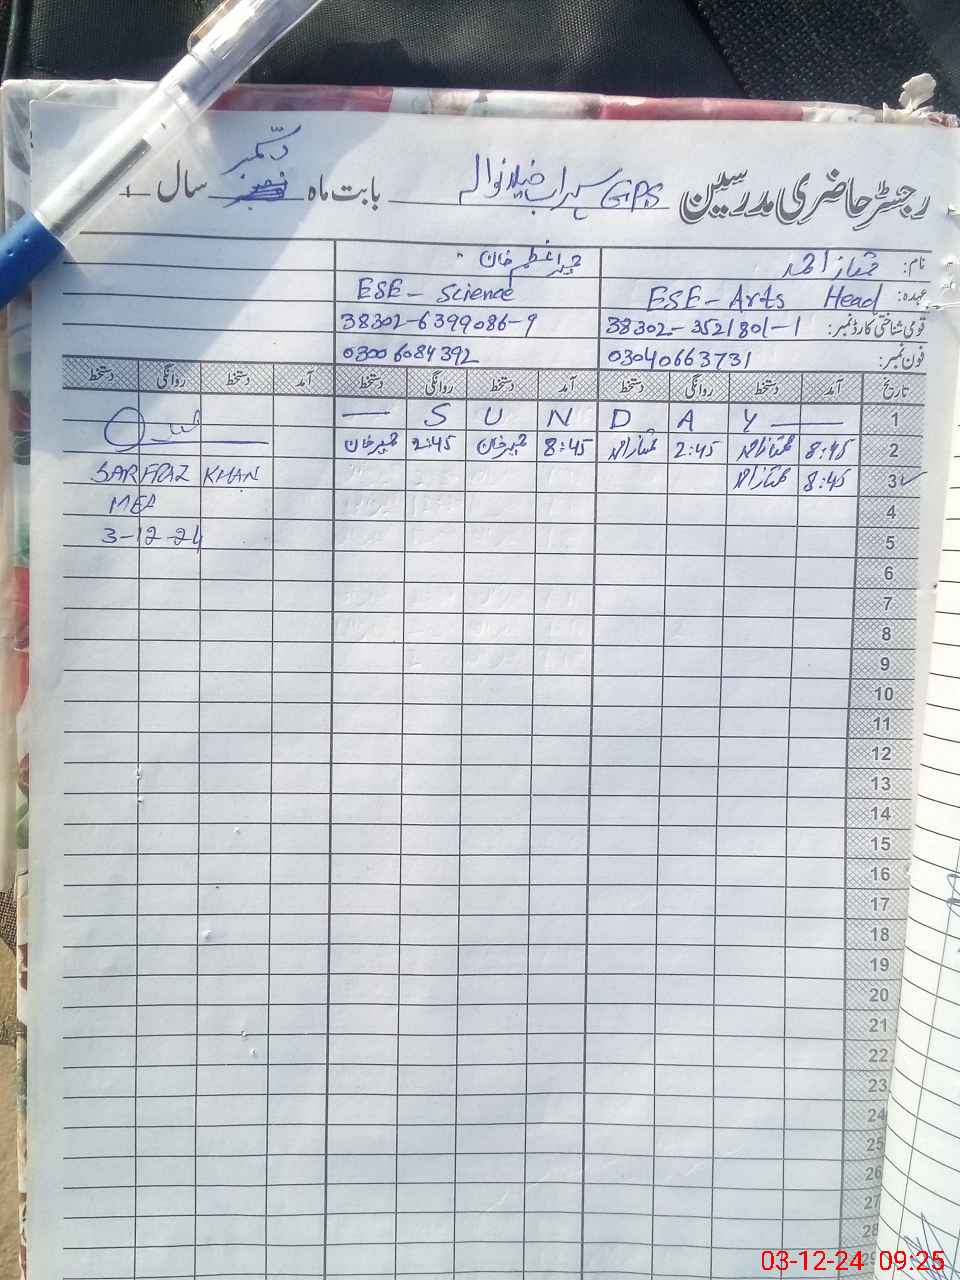 رجسٹر حاضری مدرسین GPS سہراب خیلانوالہ بابت ماہ دسمبر سال
نام: ممتاز احمد
عہدہ: ESE - Arts Head ESE - Science
قومی شناختی کارڈ نمبر: 38302-3521801-1 38302-6399086-9
فون نمبر: 03040663731 03006084392
تاریخ آمد دستخط روانگی دستخط آمد دستخط روانگی دستخط آمد دستخط روانگی دستخط
1 — S U N D A Y —
2 8:45 ممتاز احمد 2:45 ممتاز احمد 8:45 2:45
3 8:45 ممتاز احمد
SARFRAZ KHAN
MEA
3-12-24
4
5
6
7
8
9
10
11
12
13
14
15
16
17
18
19
20
21
22
23
24
25
26
27
28
29
03-12-24 09:25